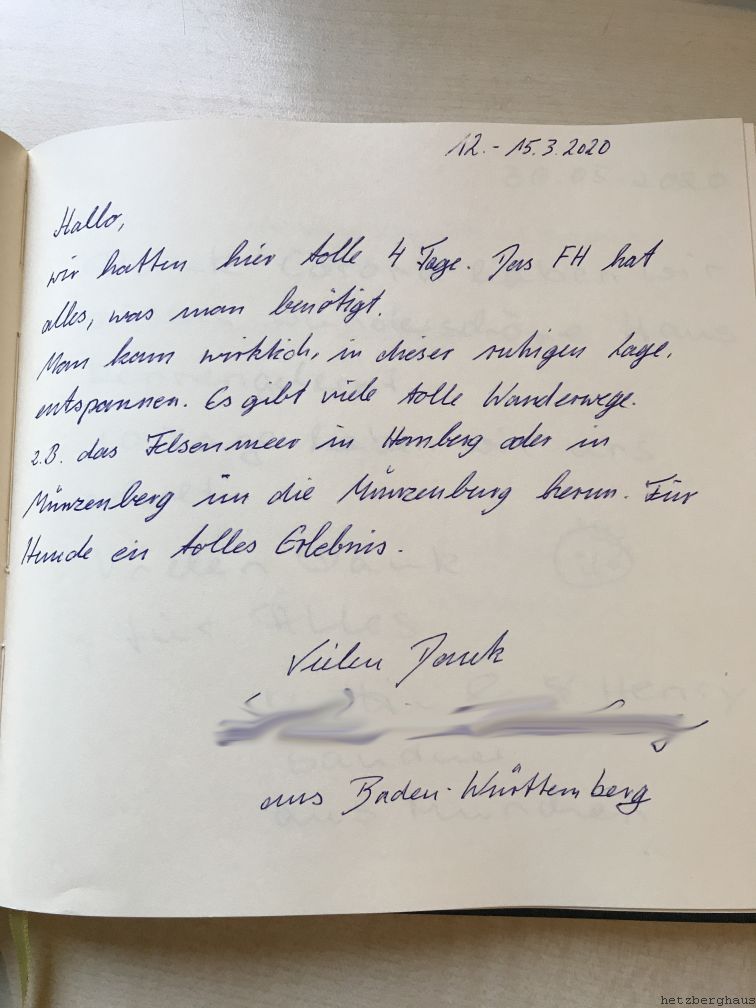 12.- 15.3.2020
Hallo,
wir hatten hier tolle 4 Tage. Das FH hat
alles, was man benötigt.
Man kann wirklich, in dieser ruhigen Lage,
entspannen. Es gibt viele tolle Wanderwege.
z.B. das Felsenmeer in Homberg oder in
Münzenberg um die Münzenburg herum. Für
Hunde ein tolles Erlebnis.
Vielen Dank
aus Baden-Württemberg
hetzberghaus